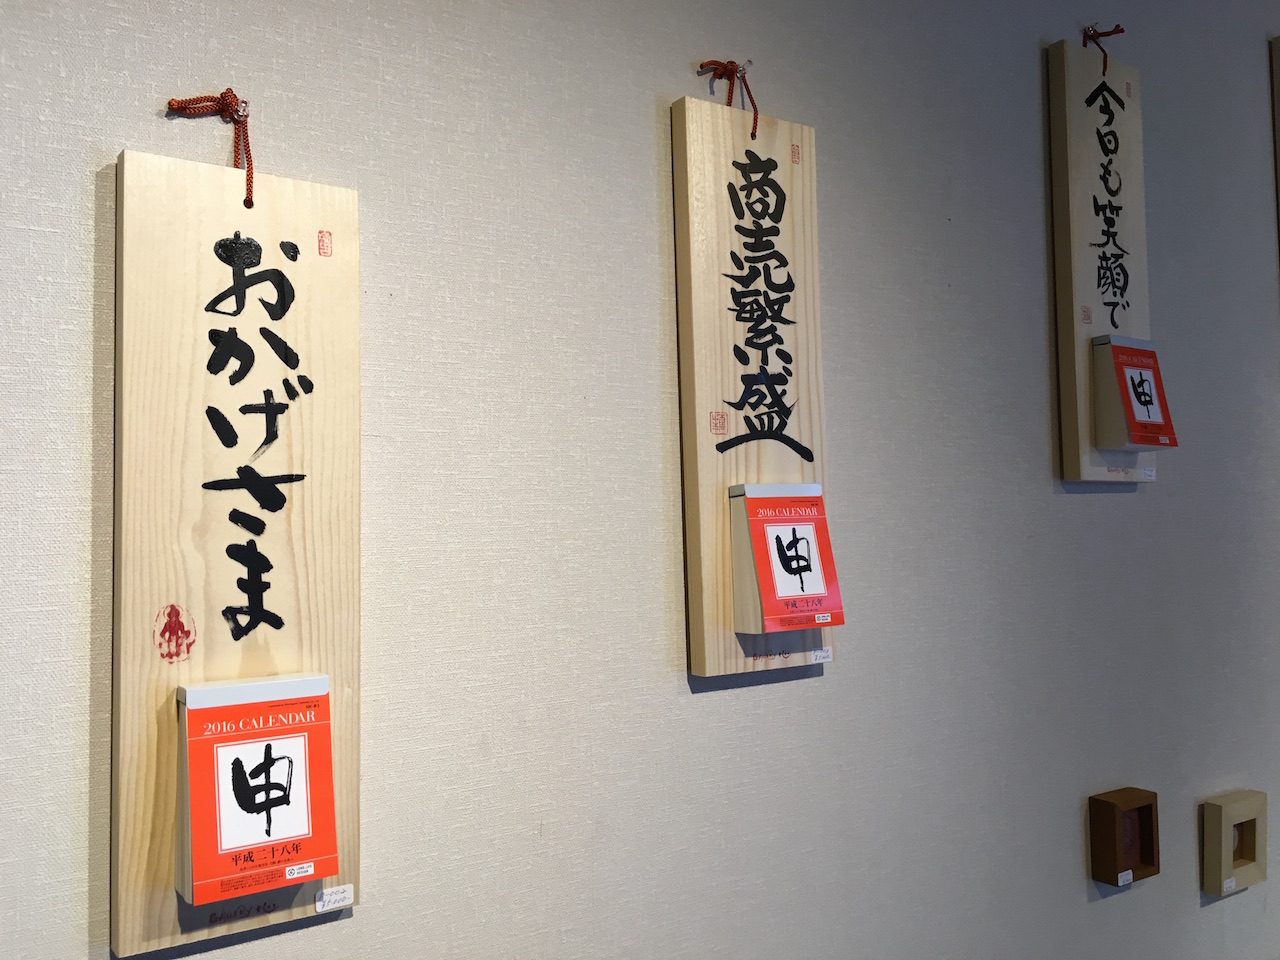 おかげさま
2016 CALENDAR
申
平成二十八年
商売繁盛
2016 CALENDAR
申
平成二十八年
今日も笑顔で
2016 CALENDAR
申